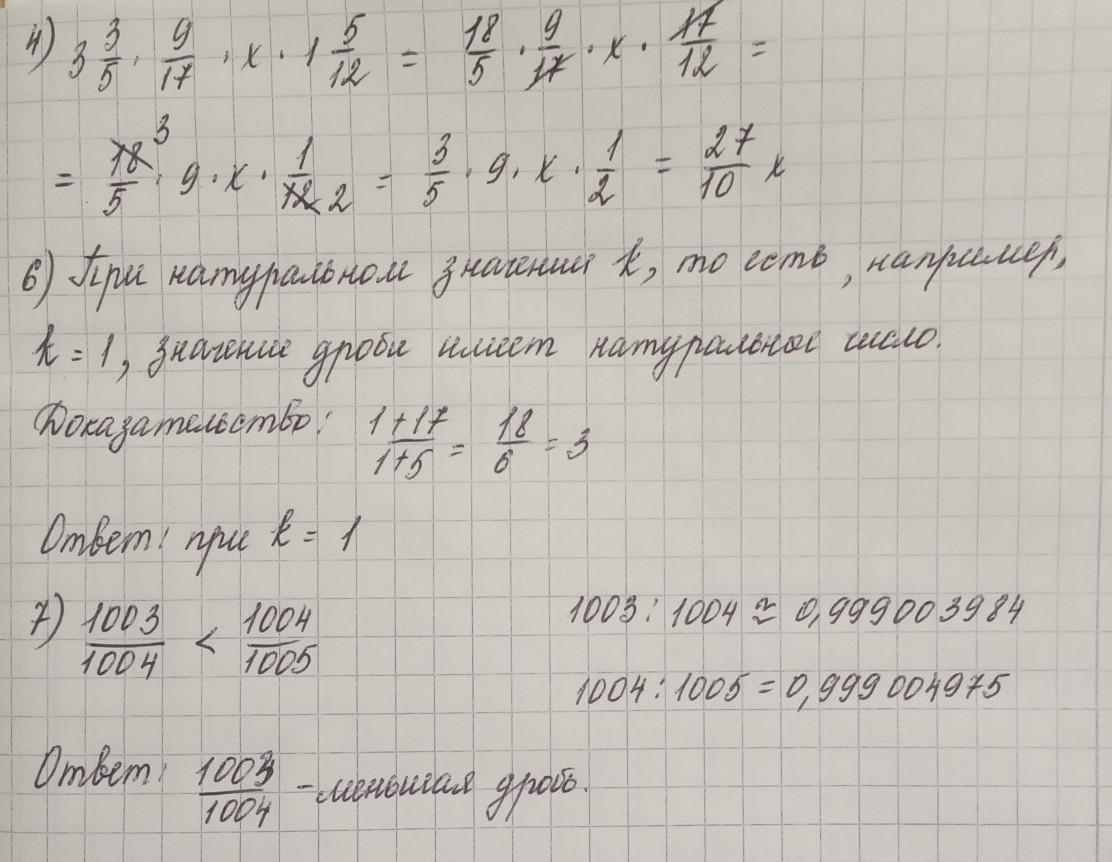 4) 3 3/5 · 9/17 · x · 1 5/12 = 18/5 · 9/17 · x · 17/12 =
= 18/5 3 · 9 · x · 1/12 2 = 3/5 · 9 · x · 1/2 = 27/10 x
6) При натуральном значении k, то есть, например,
k = 1, значение дроби имеет натуральное число.
Доказательство: 1+17/1+5 = 18/6 = 3
Ответ: при k = 1
7) 1003/1004 < 1004/1005
1003 : 1004 ≈ 0,999003984
1004 : 1005 = 0,999004975
Ответ: 1003/1004 - меньшая дробь.